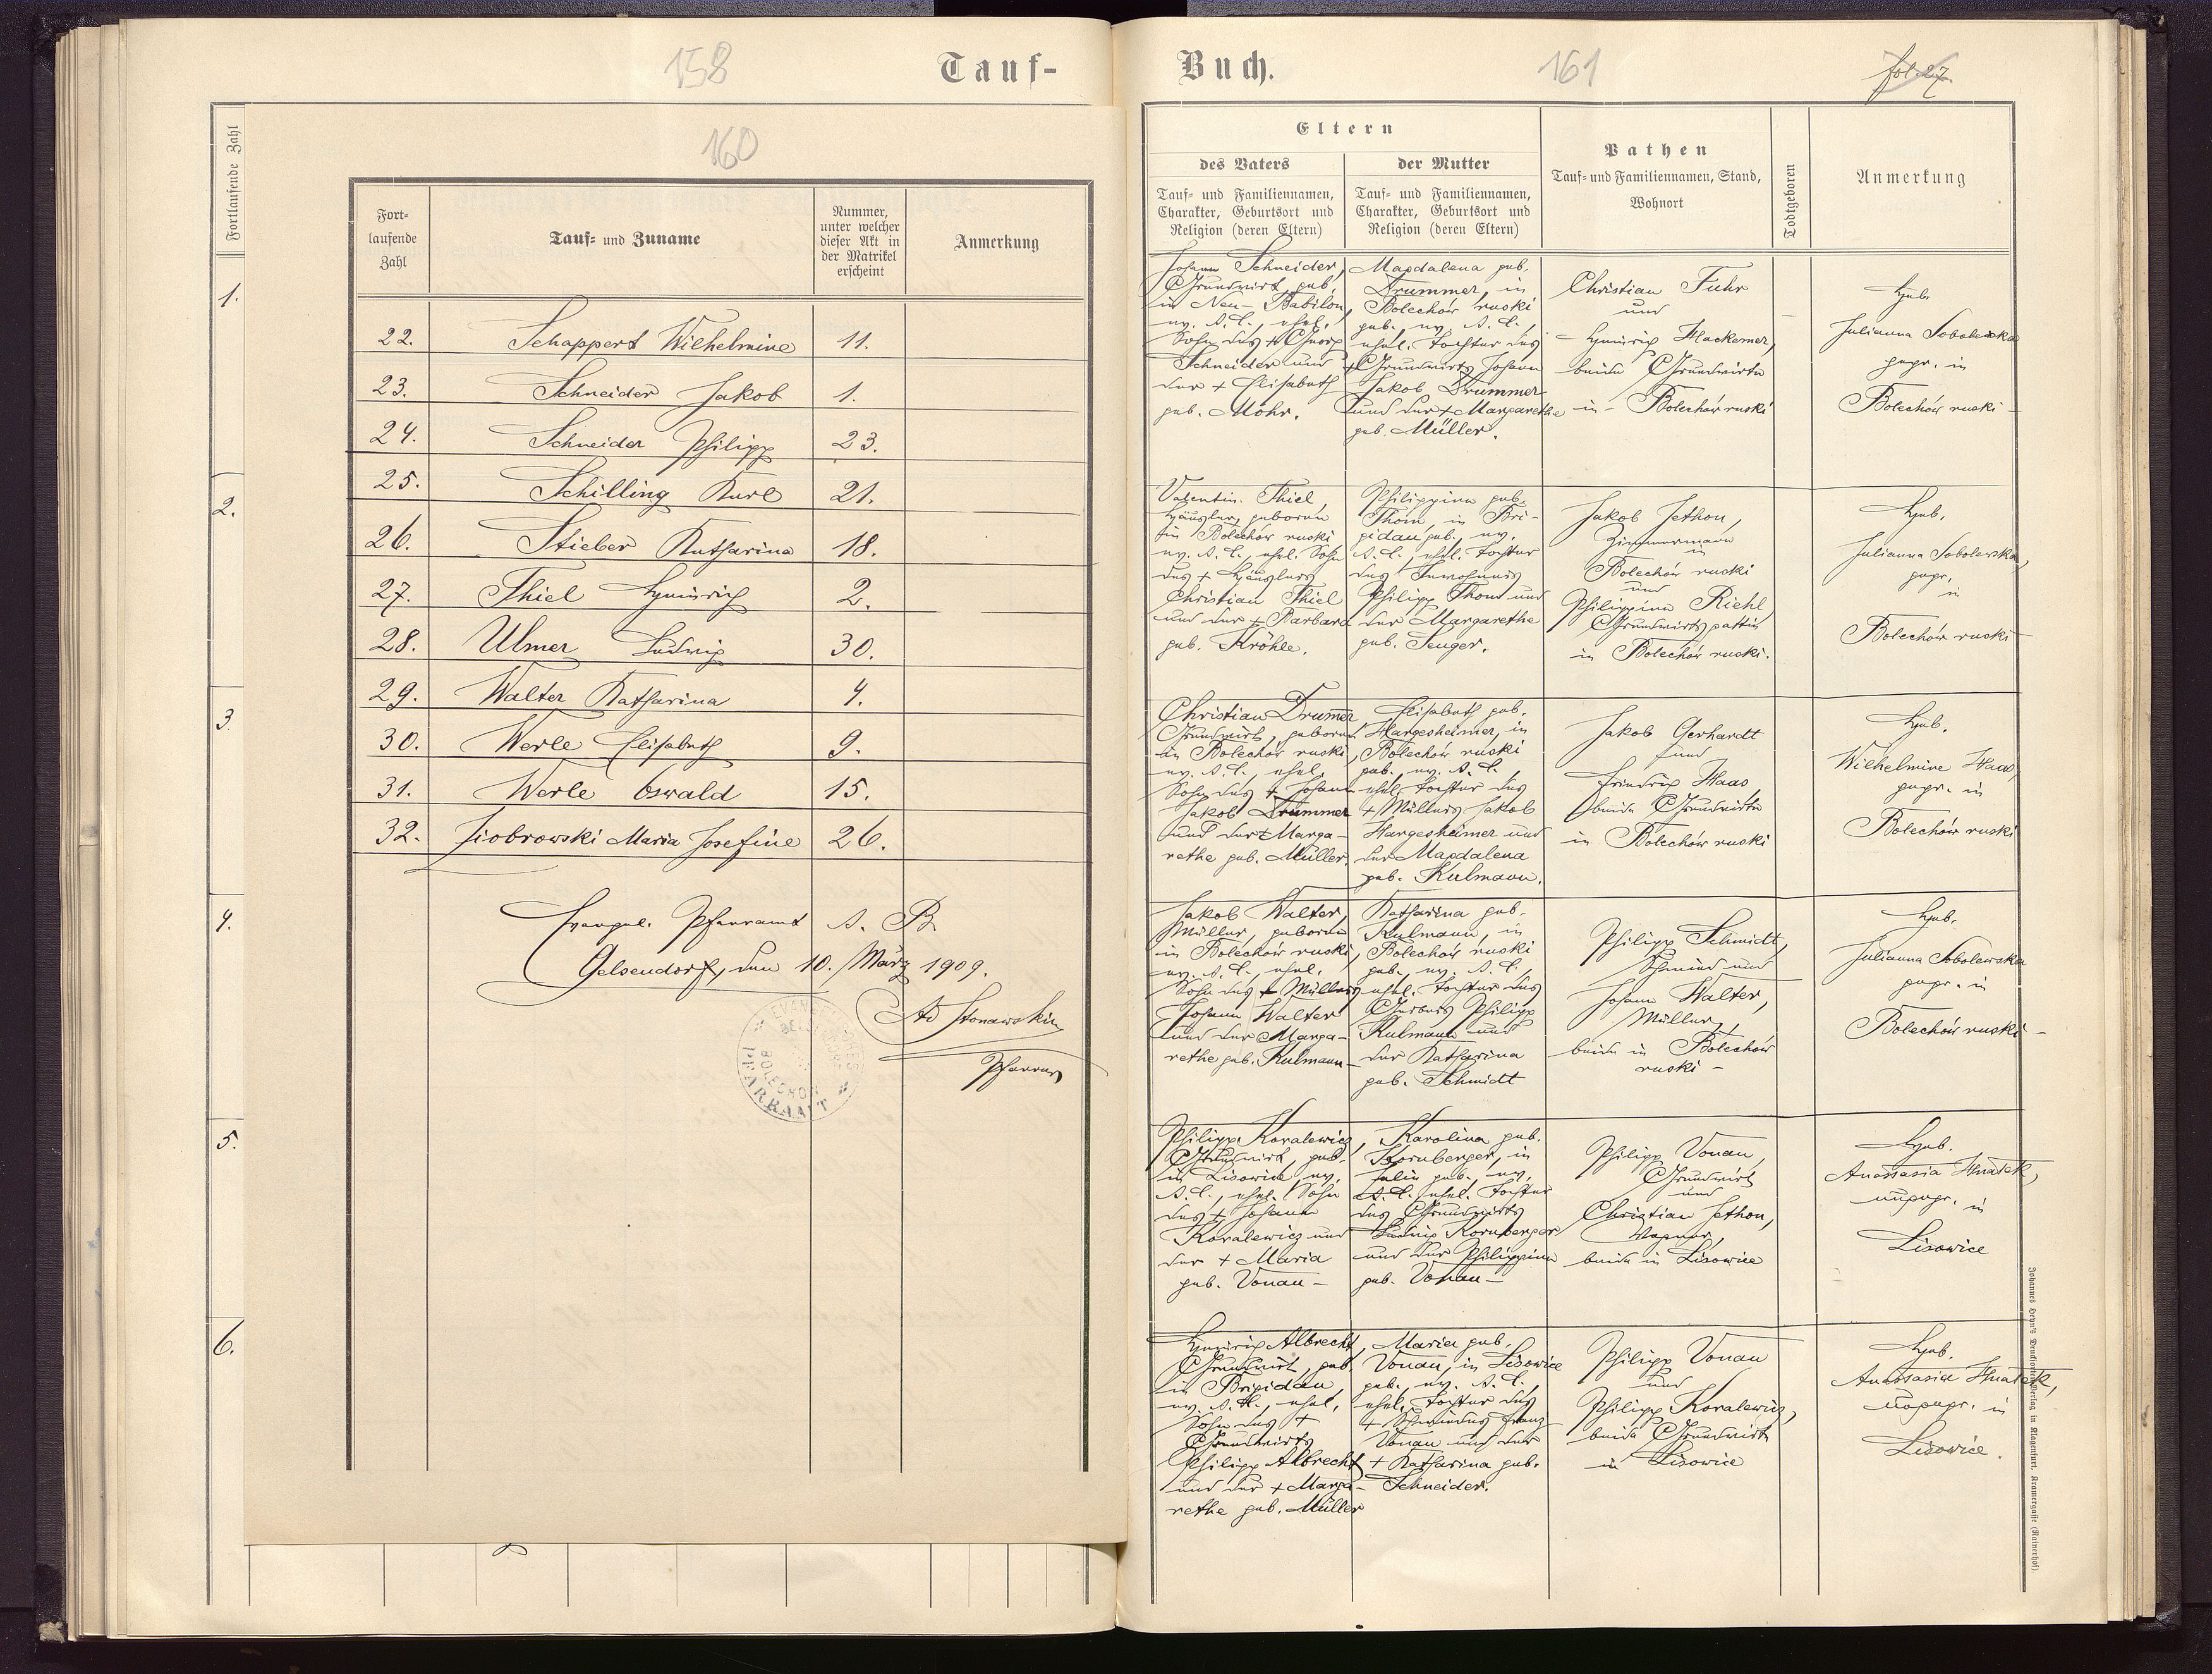 158
Tauf-
Fortlaufende Zahl
1.
2.
3.
4.
5.
6.
160
Fort-
laufende
Zahl
Tauf- und Zuname
Nummer,
unter welcher
dieser Akt in
der Matrikel
erscheint
Anmerkung
22. Schappert Wilhelmine 11.
23. Schneider Jakob 1.
24. Schneider Philipp 23.
25. Schilling Karl 21.
26. Stieber Katharina 18.
27. Thiel Heinrich 2.
28. Ulmer Ludwig 30.
29. Walter Katharina 4.
30. Werle Elisabeth 9.
31. Werle Oswald 15.
32. Ziobrowski Maria Josefine 26.
Evangel. Pfarramt A. B.
Gelsendorf, den 10. März 1909.
Pfarrer
Buch.
161
fol. 27
Eltern
des Vaters
Tauf- und Familiennamen,
Charakter, Geburtsort und
Religion (deren Eltern)
der Mutter
Tauf- und Familiennamen,
Charakter, Geburtsort und
Religion (deren Eltern)
Pathen
Tauf- und Familiennamen, Stand,
Wohnort
Todtgeboren
Anmerkung
Johann Schneider,
Grundwirt, geb.
in Neu-Babilon,
ev. A. C., ehel.
Sohn des + Georg
Schneider und
der + Elisabeth
geb. Mohr.
Magdalena geb.
Drummer, in
Bolechów ruski
geb., ev. A. C.,
ehel. Tochter des
+ Grundwirts Johann
Jakob Drummer
und der + Margarethe
geb. Müller.
Christian Fuhr
und
Heinrich Mackemer,
beide Grundwirte
in Bolechów ruski
Heb.
Julianna Sobolewska
gepr. in
Bolechów ruski
Valentin Thiel,
Häusler, geboren
in Bolechów ruski
ev. A. C., ehel. Sohn
des + Häuslers
Christian Thiel
und der + Barbara
geb. Kröhle.
Philippina geb.
Thom, in Bri-
gidau geb., ev.
A. C., ehel. Tochter
des Inwohners
Philipp Thom und
der Margarethe
geb. Senger.
Jakob Jethon,
Zimmermann
in
Bolechów ruski
und
Philippina Riehl
Grundwirtsgattin
in Bolechów ruski.
Heb.
Julianna Sobolewska,
gepr.
in
Bolechów ruski
Christian Drummer
Grundwirt, geboren
in Bolechów ruski,
ev. A. C., ehel.
Sohn des + Johann
Jakob Drummer
und der + Marga-
rethe geb. Müller.
Elisabeth geb.
Hargesheimer, in
Bolechów ruski
geb., ev. A. C.,
ehel. Tochter des
+ Müllers Jakob
Hargesheimer und
der Magdalena
geb. Kulmann.
Jakob Gerhardt
und
Friedrich Haas,
beide Grundwirte
in Bolechów ruski
Heb.
Wilhelmine Haas,
gepr. in
Bolechów ruski
Jakob Walter,
Müller, geboren
in Bolechów ruski,
ev. A. C., ehel.
Sohn des + Müllers
Johann Walter
und der Marga-
rethe geb. Kulmann
Katharina geb.
Kulmann, in
Bolechów ruski
geb. ev. A. C.,
ehel. Tochter des
Gerbers Philipp
Kulmann und
der Katharina
geb. Schmidt
Philipp Schmidt,
Schmied und
Johann Walter,
Müller,
beide in Bolechów
ruski
Heb.
Julianna Sobolewska
gepr. in
Bolechów ruski
Philipp Kovalewicz,
Grundwirt, geb.
in Lisowice, ev.
A. C., ehel. Sohn
des + Johann
Kovalewicz und
der + Maria
geb. Vonau
Karolina geb.
Kornberger, in
geb., ev.
A. C. ehel. Tochter
des Grundwirts
Ludwig Kornberger
und der Philippina
geb. Vonau
Philipp Vonau,
Grundwirt
und
Christian Jethon,
Wagner,
beide in Lisowice
Heb.
Anastasia Hnatek,
ungepr. in
Lisowice
Heinrich Albrecht,
Grundwirt, geb.
in Brigidau
ev. A. C., ehel.
Sohn des +
Grundwirts
Philipp Albrecht
und der + Marga-
rethe geb. Müller
Maria geb.
Vonau, in Lisowice
geb., ev. A. C.,
ehel. Tochter des
+ Schmiedes Franz
Vonau und der
+ Katharina geb.
Schneider.
Philipp Vonau
und
Philipp Kovalewicz,
beide Grundwirte
in Lisowice
Heb.
Anastasia Hnatek,
ungepr. in
Lisowice.
Johannes Heyn's Druckerei-Verlag in Klagenfurt, Kramergasse (Rainerhof)